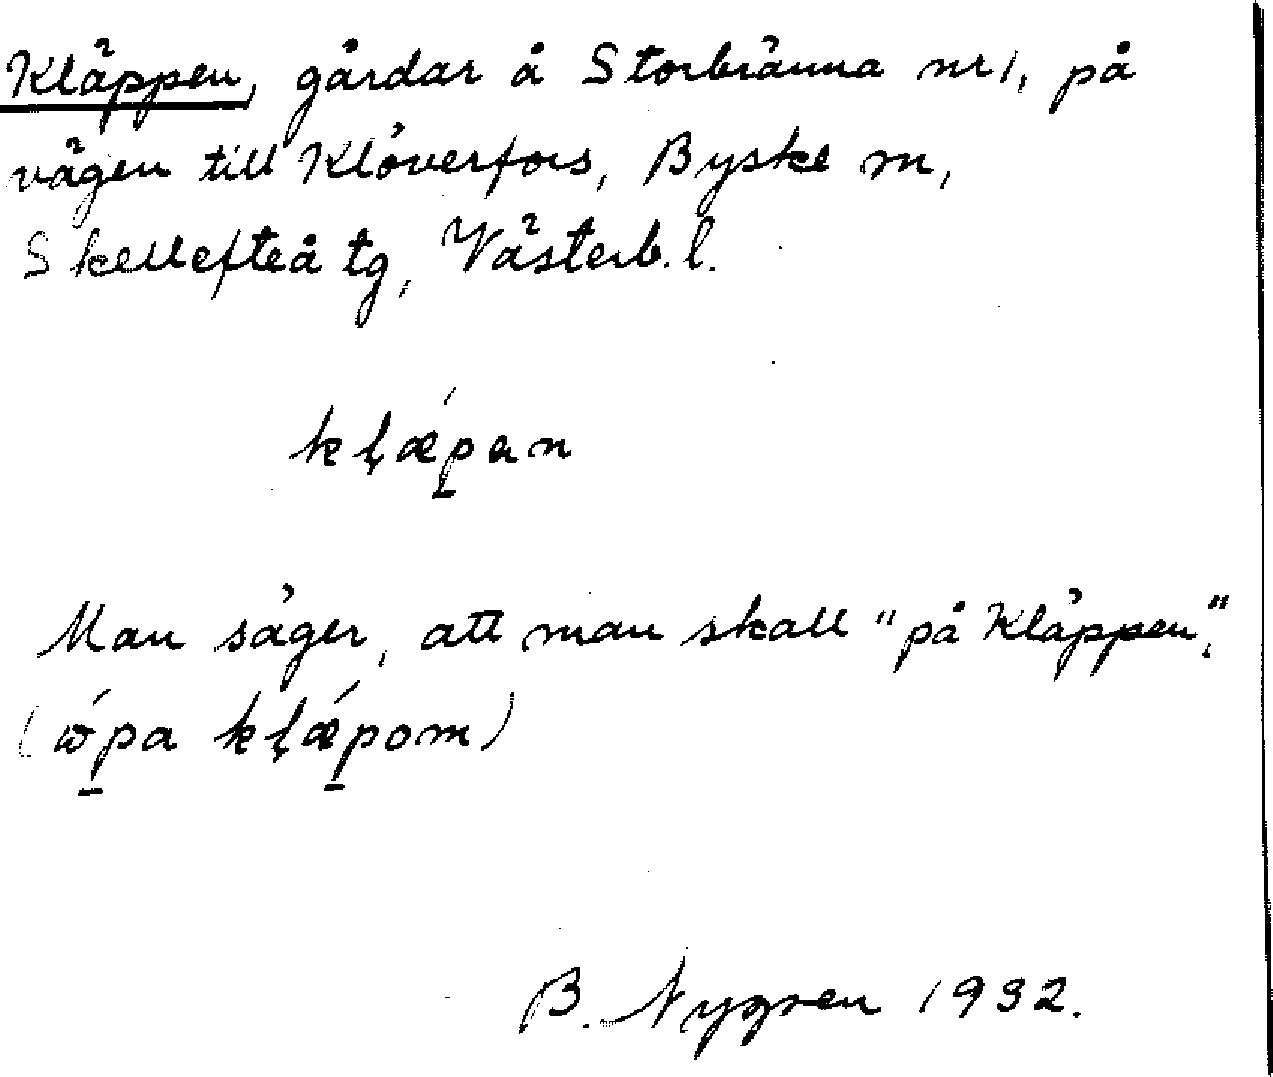 Kläppen, gårdar å Storbränna nr 1, på
vägen till Klöverfors, Byske sn,
Skellefteå tg, Västerb. l.
kl̨ǽp̱an
Man säger, att man skall "på Kläppen".
(ẃp̱a kl̨ǽp̱om)
B. Nygren 1932.